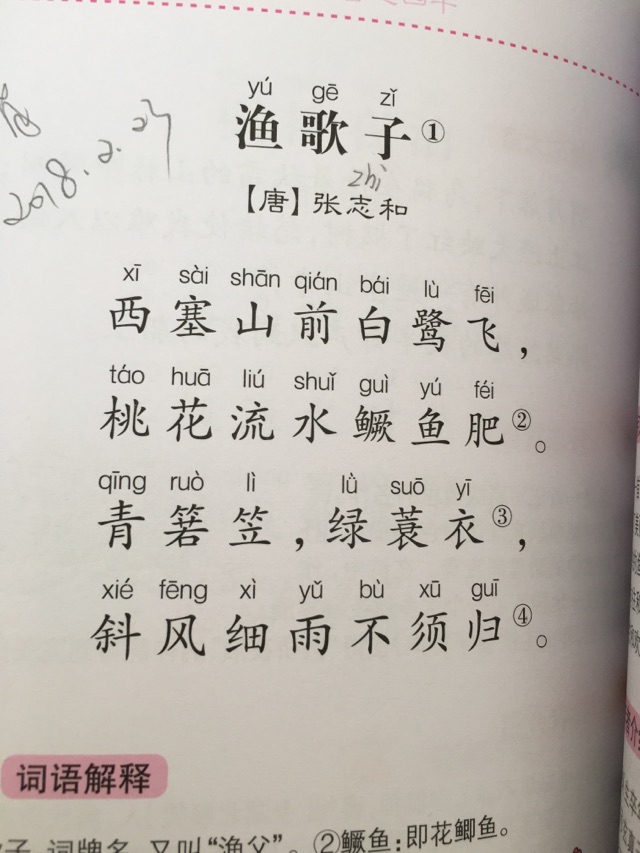 yú gē zǐ
渔歌子①
2018.2.27
zhì
【唐】张志和
xī sài shān qián bái lù fēi
西塞山前白鹭飞，
táo huā liú shuǐ guì yú féi
桃花流水鳜鱼肥②。
qīng ruò lì lǜ suō yī
青箬笠，绿蓑衣③，
xié fēng xì yǔ bù xū guī
斜风细雨不须归④。
词语解释
子，词牌名，又叫“渔父”。②鳜鱼：即花鲫鱼。